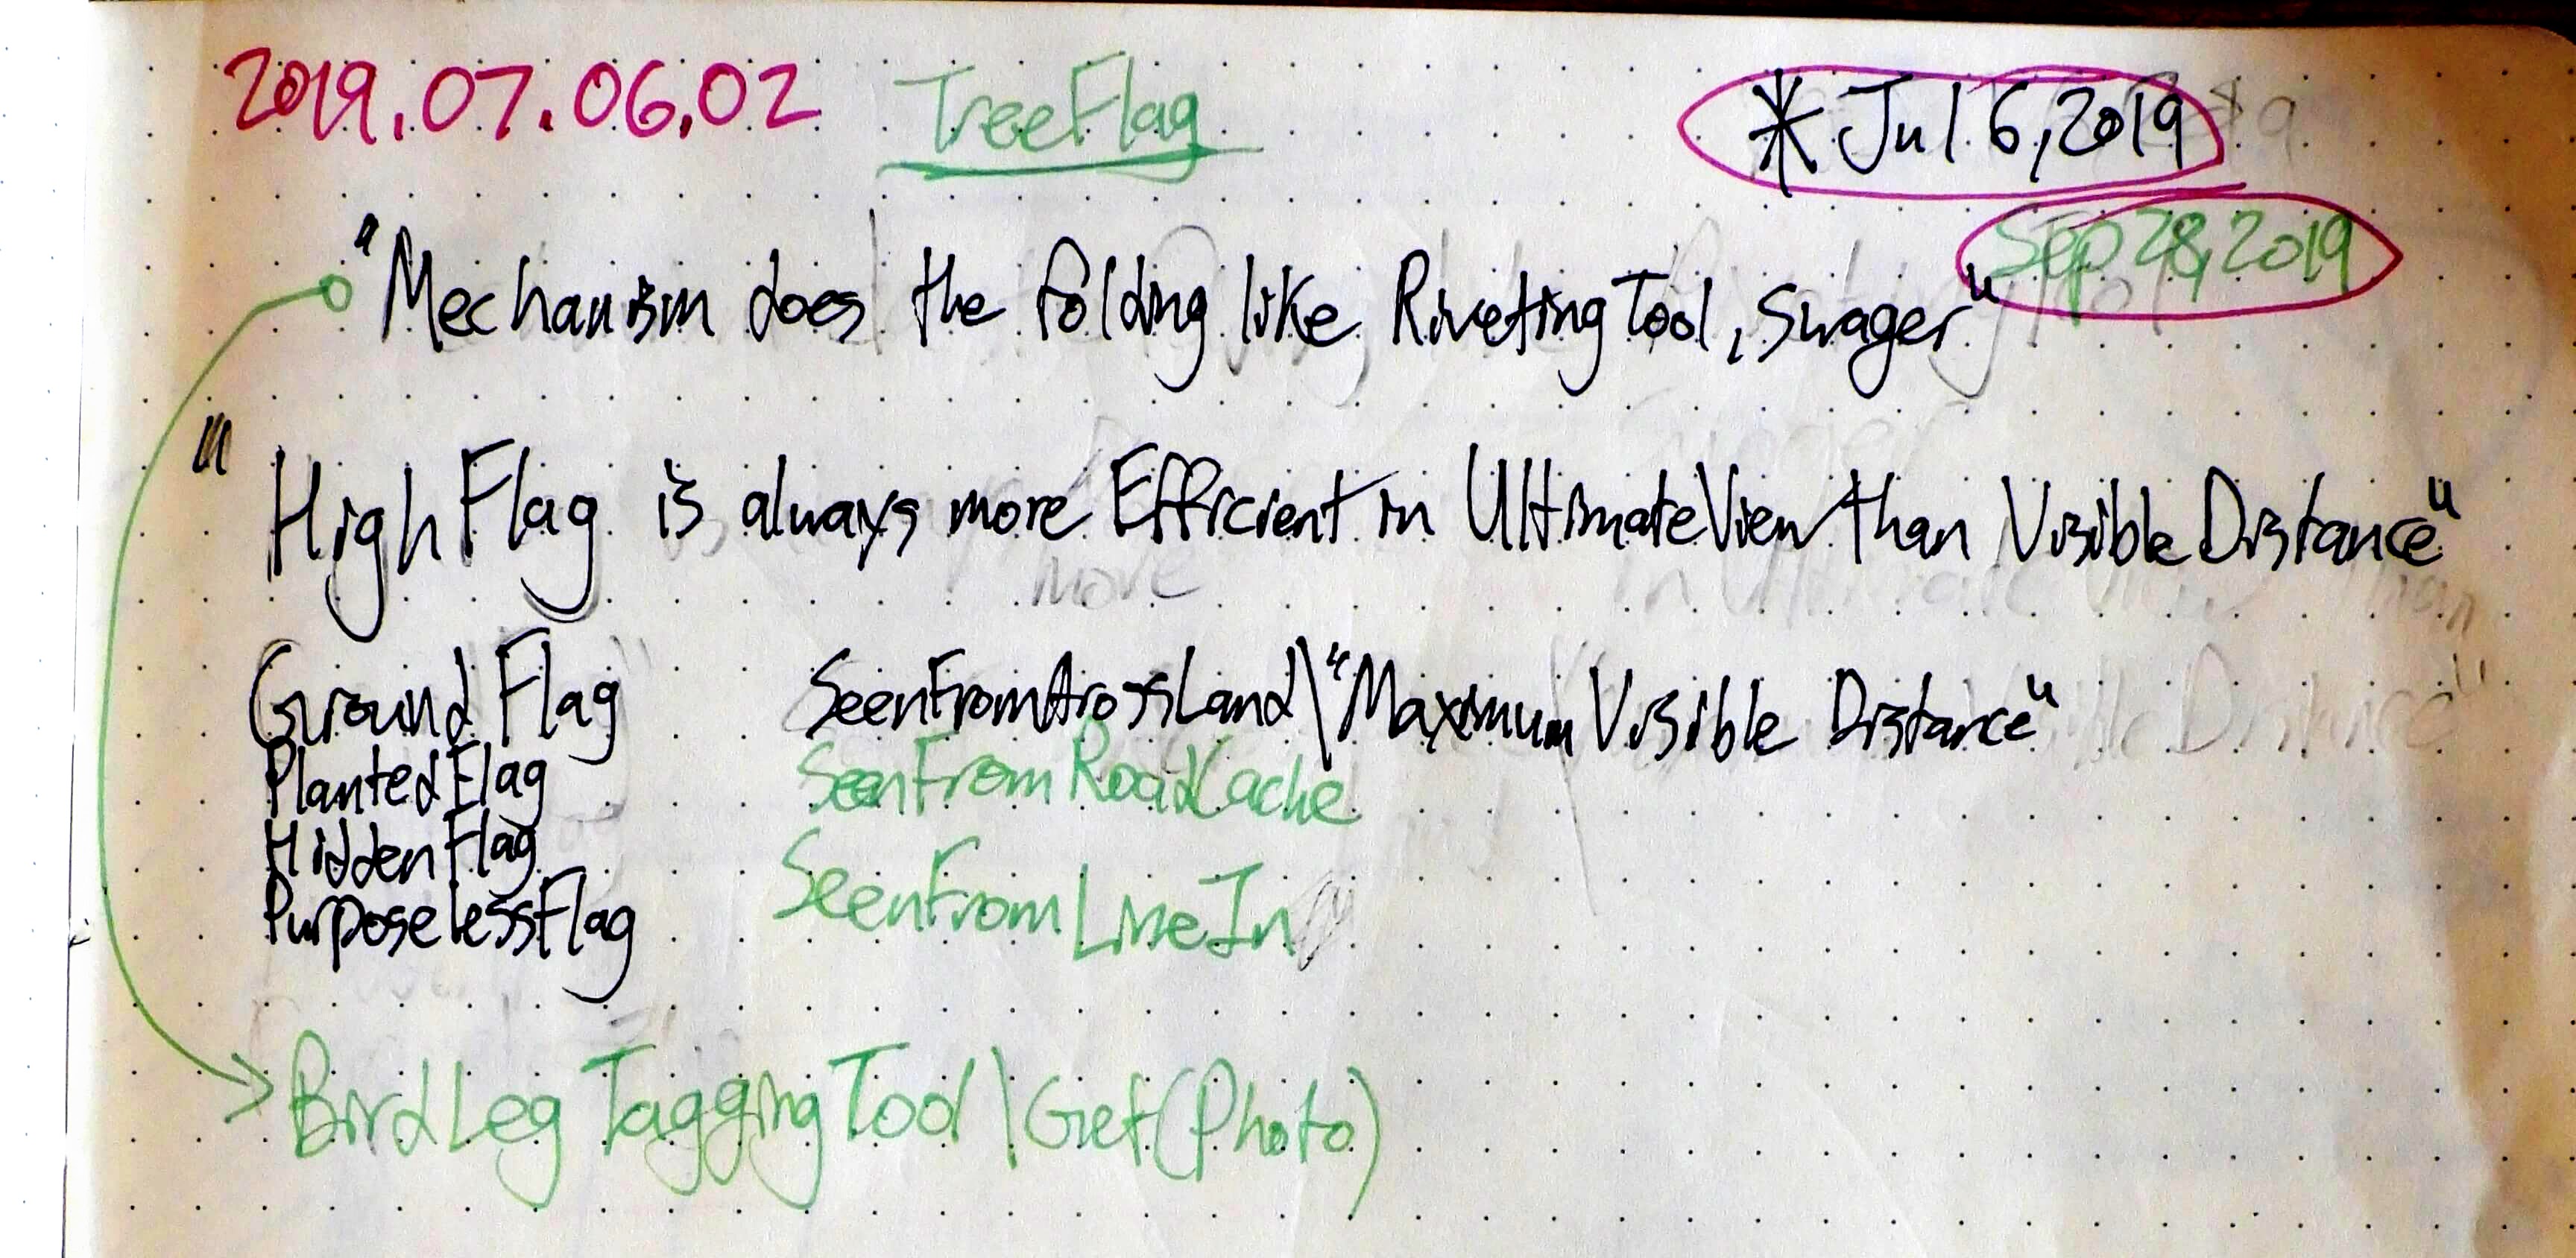 2019.07.06.02 TreeFlag * Jul 6, 2019
Sep 28, 2019
"Mechanism does the folding like RivetingTool, Swager"
"HighFlag is always more Efficient in UltimateView than VisibleDistance"
GroundFlag SeenFromAcrossLand\"Maximum Visible Distance"
PlantedFlag SeenFromRoad\Cache
HiddenFlag
PurposelessFlag SeenFromLineIn
BirdLegTaggingTool\Get(Photo)